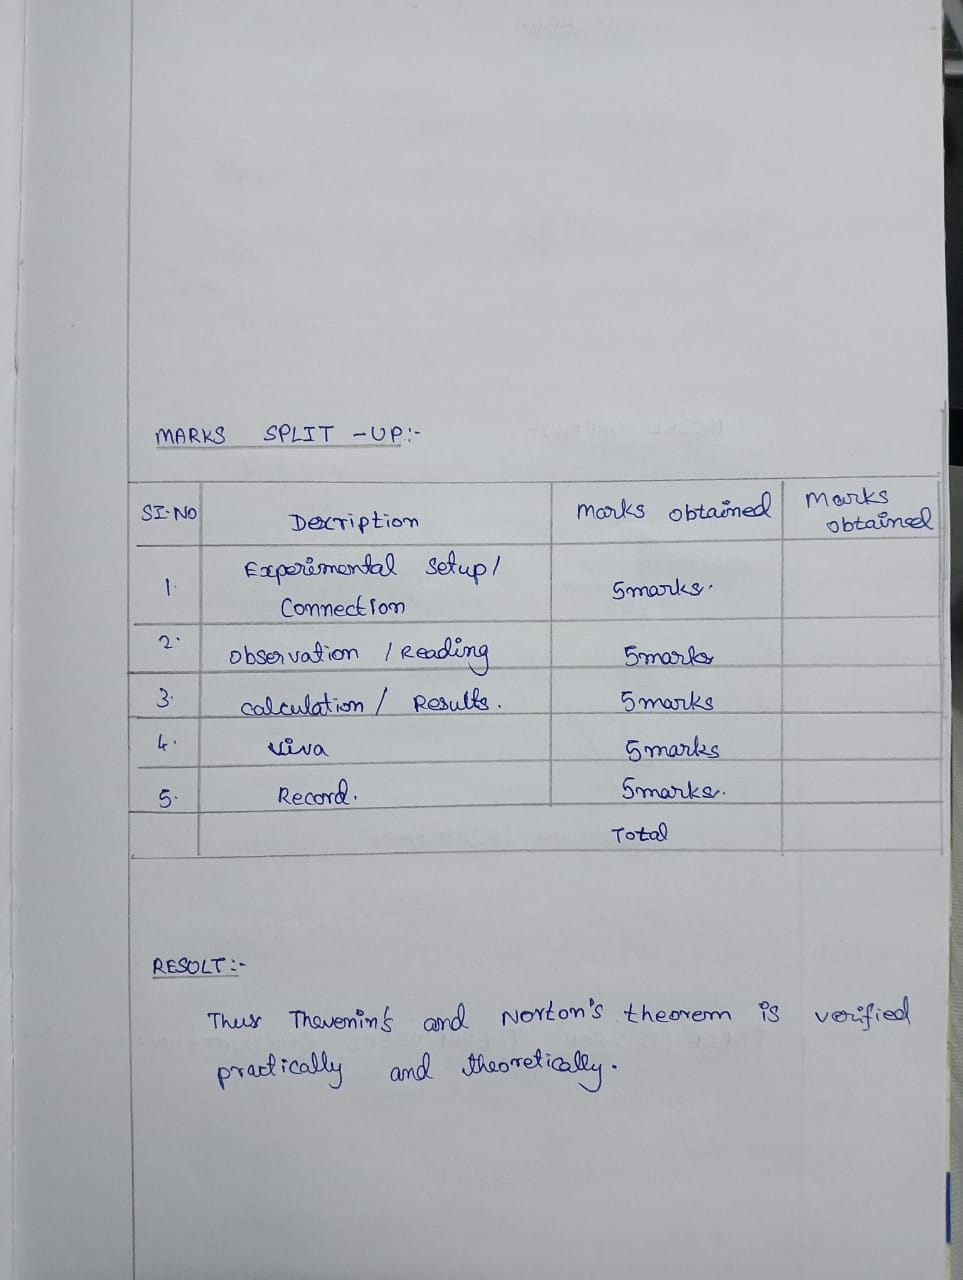 MARKS SPLIT - UP:-
SI.NO Description Marks obtained Marks obtained
1. Experimental setup/ Connection 5marks.
2. Observation / Reading 5marks
3. calculation / Results. 5marks
4. Viva 5marks
5. Record. 5marks.
Total
RESULT:-
Thus Thevenin's and Norton's theorem is verified
practically and theoretically.